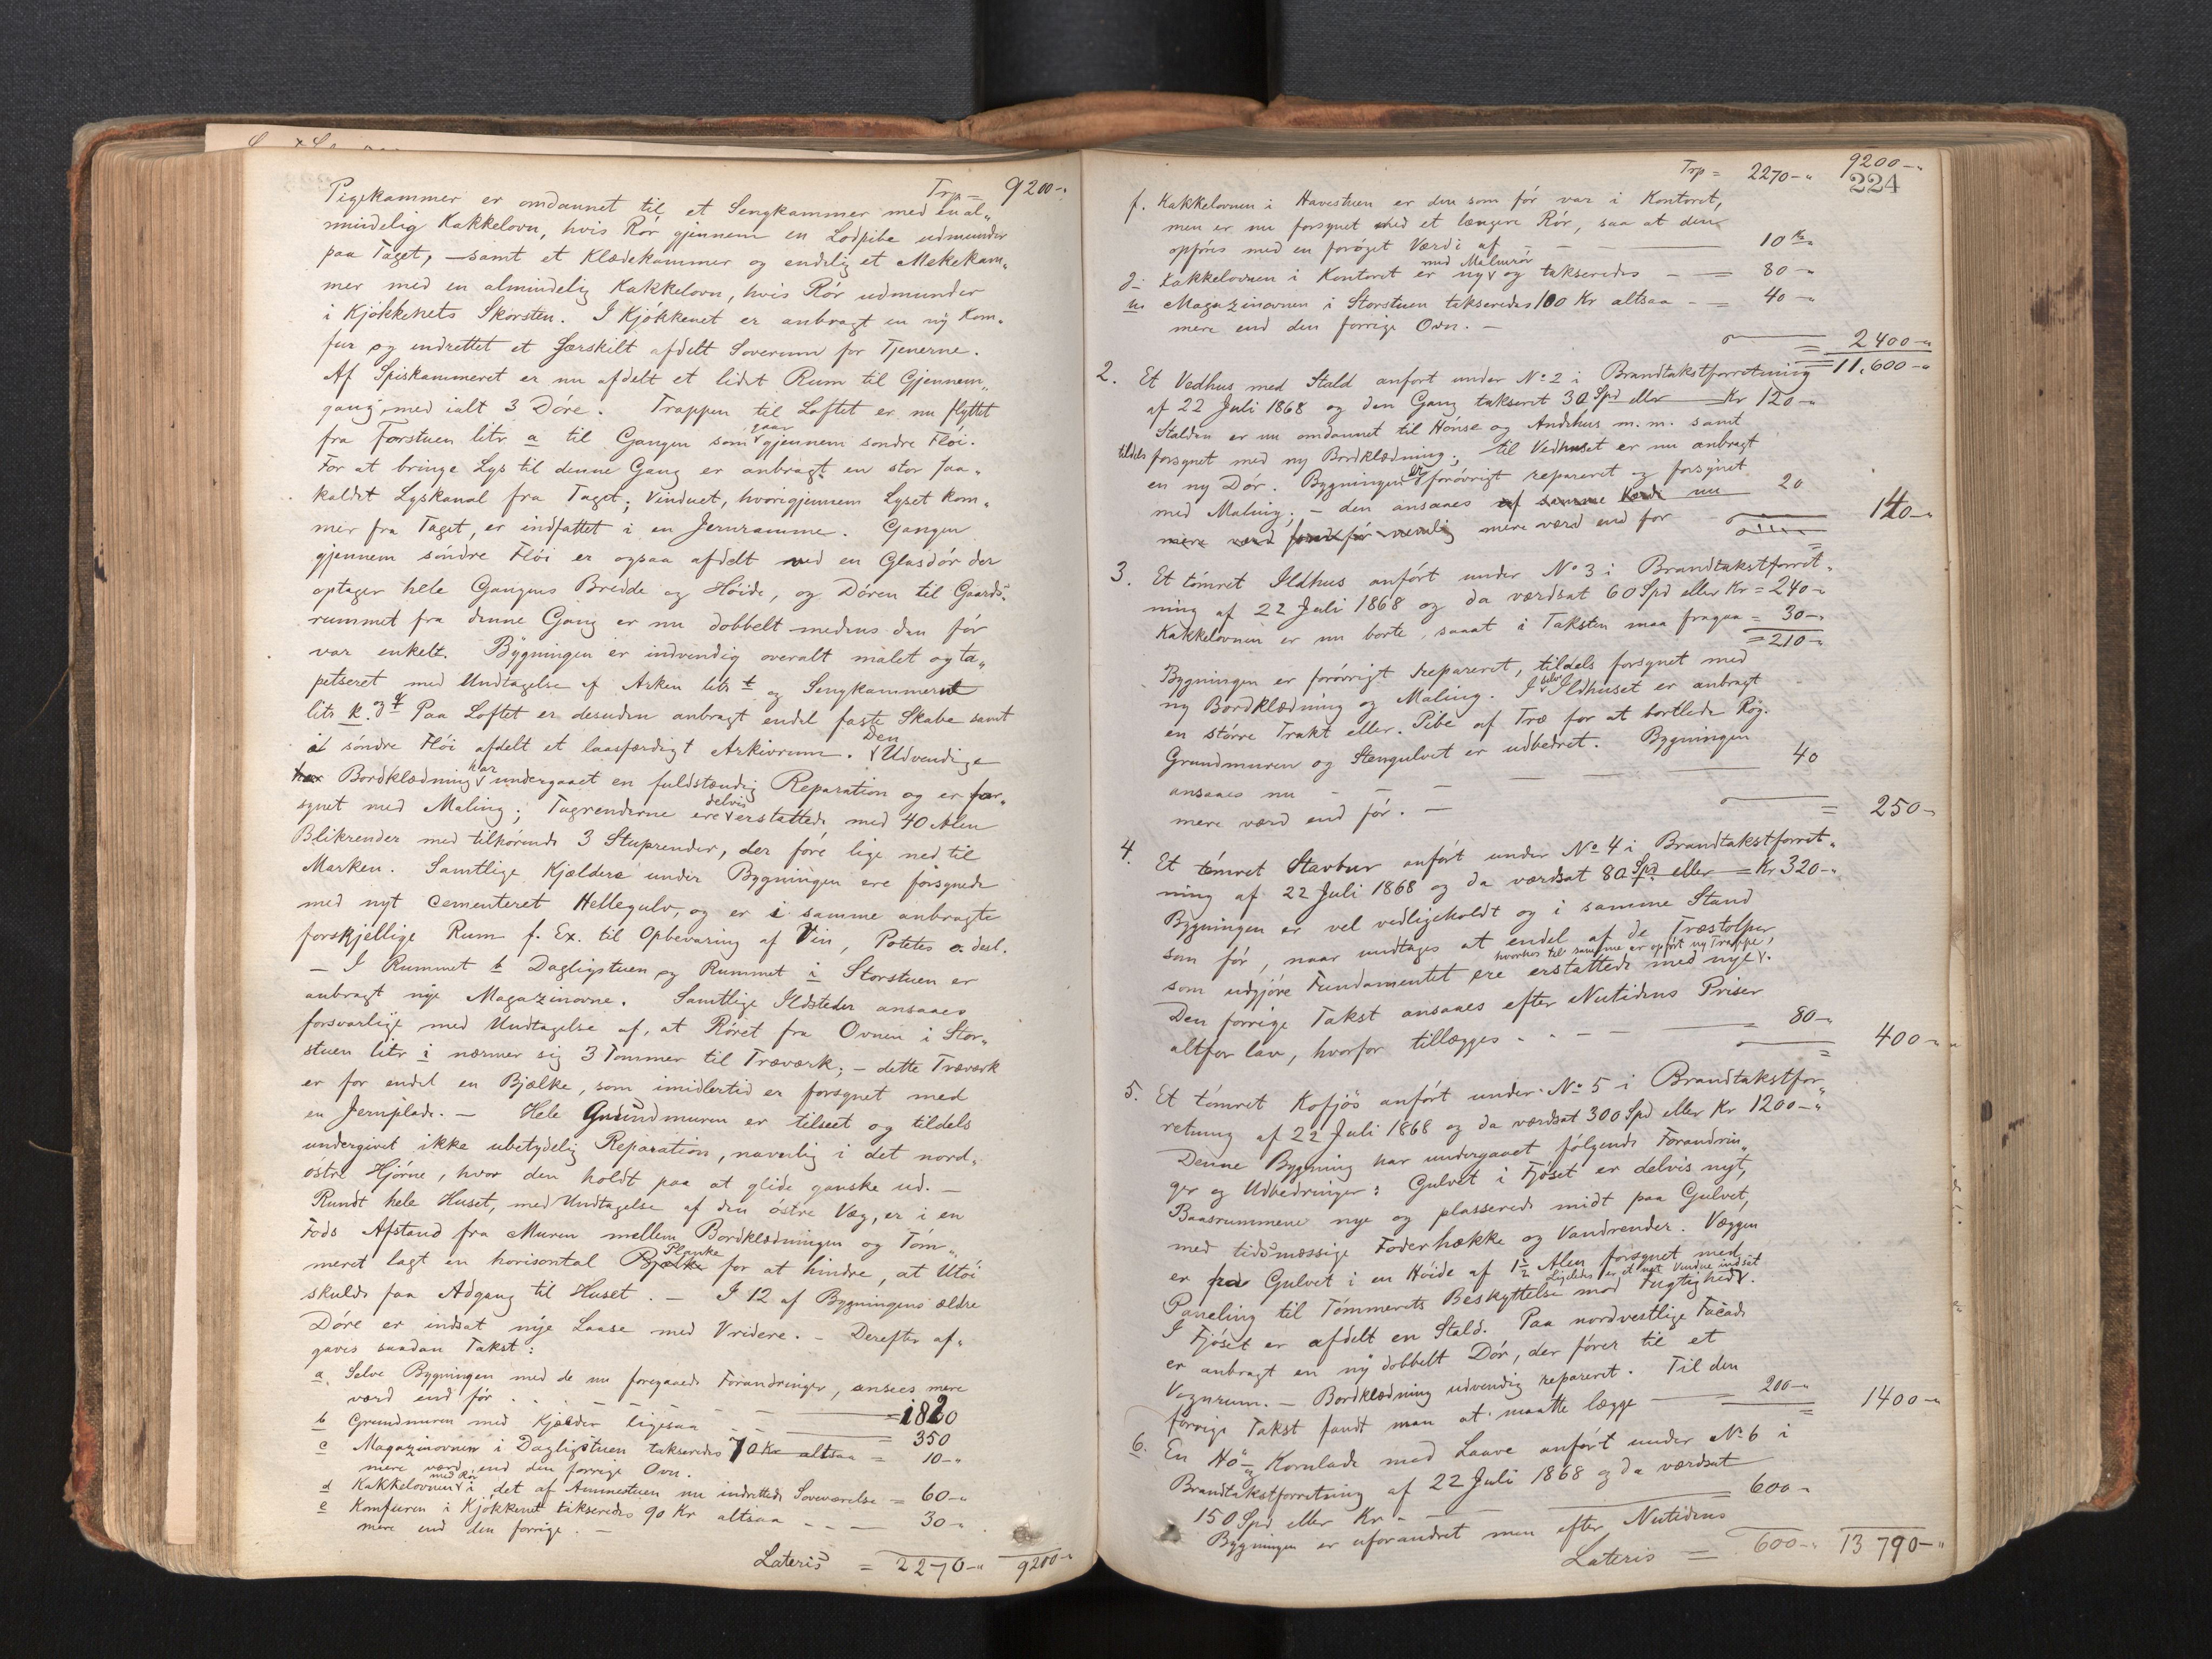 Trp = 9200-"
Pigekammer er omdannet til et Sengkammer med en al„
mindelig Kakkelovn, hvis Rör gjennem en Lodpibe udmunder
paa Taget, — samt et Klædekammer og endelig et Mekekam„
mer med en almindelig Kakkelovn, hvis Rör udmunder
i Kjökkenets Skorsten. I Kjökkenet er anbragt en ny Kom„
fur og indrettet et særskilt afdelt Soverum for Tjenerne.
Af Spiskammeret er nu afdelt et lidet Rum til Gjennem„
gang, med ialt 3 Döre. Trappen til Loftet er nu flyttet
fra Forstuen litr a til Gangen som gaar gjennem söndre Flöi.
For at bringe Lys til denne Gang er anbragt en stor saa„
kaldet Lyskanal fra Taget; Vinduet, hvorigjennem Lyset kom„
mer fra Taget, er indfattet i en Jernramme. Gangen
gjennem söndre Flöi er ogsaa afdelt ved en Glasdör der
optager hele Gangens Bredde og Höide, og Dören til Gaards„
rummet fra denne Gang er nu dobbelt medens den för
var enkelt. Bygningen er indvendig overalt malet og ta„
petseret med Undtagelse af Arken litr t og Sengkammerset
litr k. og q Paa Loftet er desuden anbragt endel faste Skabe samt
i söndre Flöi afdelt et laasfærdigt Arkivrum. Den Udvendige
har Bordklædning har undergaaet en fuldstændig Reparation og er for„
synet med Maling; Tagrenderne ere delvis erstattede med 40 Alen
Blikrender med tilhörende 3 Stuprender, der före lige ned til
Marken. Samtlige Kjældere under Bygningen ere forsynede
med nyt cementeret Hellegulv, og er i samme anbragte
forskjellige Rum f. Ex. til Opbevaring af Vin, Potetes o. desl.
— I Rummet b Dagligstuen og Rummet i Storstuen er
anbragt nye Magazinovne. Samtlige Ildsteder ansaaes
forsvarlige med Undtagelse af, at Röret fra Ovnen i Stor„
stuen litr i nærmer sig 3 Tommer til Træværk; — dette Træværk
er for endel en Bjælke, som imidlertid er forsynet med
en Jernplade. — Hele Grundmuren er tilseet og tildels
undergivet ikke ubetydelig Reparation, navnlig i det nord„
östre Hjörne, hvor den holdt paa at glide ganske ud. —
Rundt hele Huset, med Undtagelse af den östre Væg, er i en
Fods Afstand fra Muren mellem Bordklædningen og Töm„
meret lagt en horisontal Bjælke Planke for at hindre, at Utöi
skulde faa Adgang til Huset. — I 12 af Bygningens ældre
Döre er indsat nye Laase med Vridere. — Derefter af„
gaves saadan Takst:
a. Selve Bygningen med de nu foregaaede Forandringer, ansees mere
værd end för . . . — — = 1820
b Grundmuren med Kjælder ligesaa — — = 350
c Magazinovnen i Dagligstuen takseredes 70 Kr altsaa = 10-"
mere værd end den forrige Ovn.
d Kakkelovnen med Rör i det af Ammestuen nu indrettede Soveværelse = 60-"
e Komfuren i Kjökkenet takseredes 90 Kr altsaa - - — 30-"
mere end den forrige. —
Lateris = 2270-" 9200-"
Trp = 2270-" 9200-"
224
f. Kakkelovnen i Havestuen er den som för var i Kontoret,
men er nu forsynet med et længere Rör, saa at den
opföres med en foröget Værdi af - — 10 Kr
g. Kakkelovnen i Kontoret er ny med Malmrör og takseredes - = 80-"
h. Magazinovnen i Storstuen takseredes 100 Kr altsaa - = 40-"
mere end den forrige Ovn. —
= 2400-"
= 11.600-"
2. Et Vedhus med Stald anfört under No 2 i Brandtakstforretning
af 22 Juli 1868 og den Gang takseret 30 Spd eller — Kr 120-"
Stalden er nu omdannet til Hönse og Andehus m. m. samt
tildels forsynet med ny Bordklædning; til Vedhuset er nu anbragt
en ny Dör. Bygningen er forövrigt repareret og forsynet
med Maling; — den ansaaes af samme Værdi nu — 20
mere værd end för nemlig mere værd end för
140-"
3. Et tömret Ildhus anfört under No 3 i Brandtakstforret„
ning af 22 Juli 1868 og da værdsat 60 Spd eller Kr = 240-"
Kakkelovnen er nu borte, saaat i Taksten maa fragaa = 30-"
= 210-"
Bygningen er forövrigt repareret, tildels forsynet med
ny Bordklædning og Maling. I selve Ildhuset er anbragt
en större Trakt eller Pibe af Træ for at bortlede Rög.
Grundmuren og Stengulvet er udbedret. Bygningen
ansaaes nu - — — 40
mere værd end för. —
= 250-"
4. Et tömret Stavbur anfört under No 4 i Brandtakstforret„
ning af 22 Juli 1868 og da værdsat 80 Spd eller = Kr. 320-"
Bygningen er vel vedligeholdt og i samme Stand
som för, naar undtages at endel af de Træstolper
som udgjöre Fundamentet ere erstattede med nye, hvorhos til samme er opfört ny Trappe.
Den forrige Takst ansaaes efter Nutidens Priser
altfor lav, hvorfor tillægges - - — = 80-"
= 400-"
5. Et tömret Kofjös anfört under No 5 i Brandtakstfor„
retning af 22 Juli 1868 og da værdsat 300 Spd eller Kr. 1200-"
Denne Bygning har undergaaet fölgende Forandrin„
ger og Udbedringer: Gulvet i Fjöset er delvis nyt,
Baasrummene nye og plasserede midt paa Gulvet,
med tidsmæssige Foderhække og Vandrender. Væggen
er fra Gulvet i en Höide af 1½ Alen forsynet med
Paneling til Tömmerets Beskyttelse mod Fugtighed. Ligeledes er et nyt Vindue indsat
I Fjöset er afdelt en Stald. Paa nordvestlige Facade
er anbragt en ny dobbelt Dör, der förer til et
Vognrum. — Bordklædning udvendig repareret. Til den
forrige Takst fandt man at maatte lægge — = 200-"
= 1400-"
6. En Hö- og Kornlade med Laave anfört under No 6 i
Brandtakstforretning af 22 Juli 1868 og da værdsat
150 Spd eller Kr - — — = 600-
Bygningen er uforandret men efter Nutidens
Lateris = 600-" 13 790-"